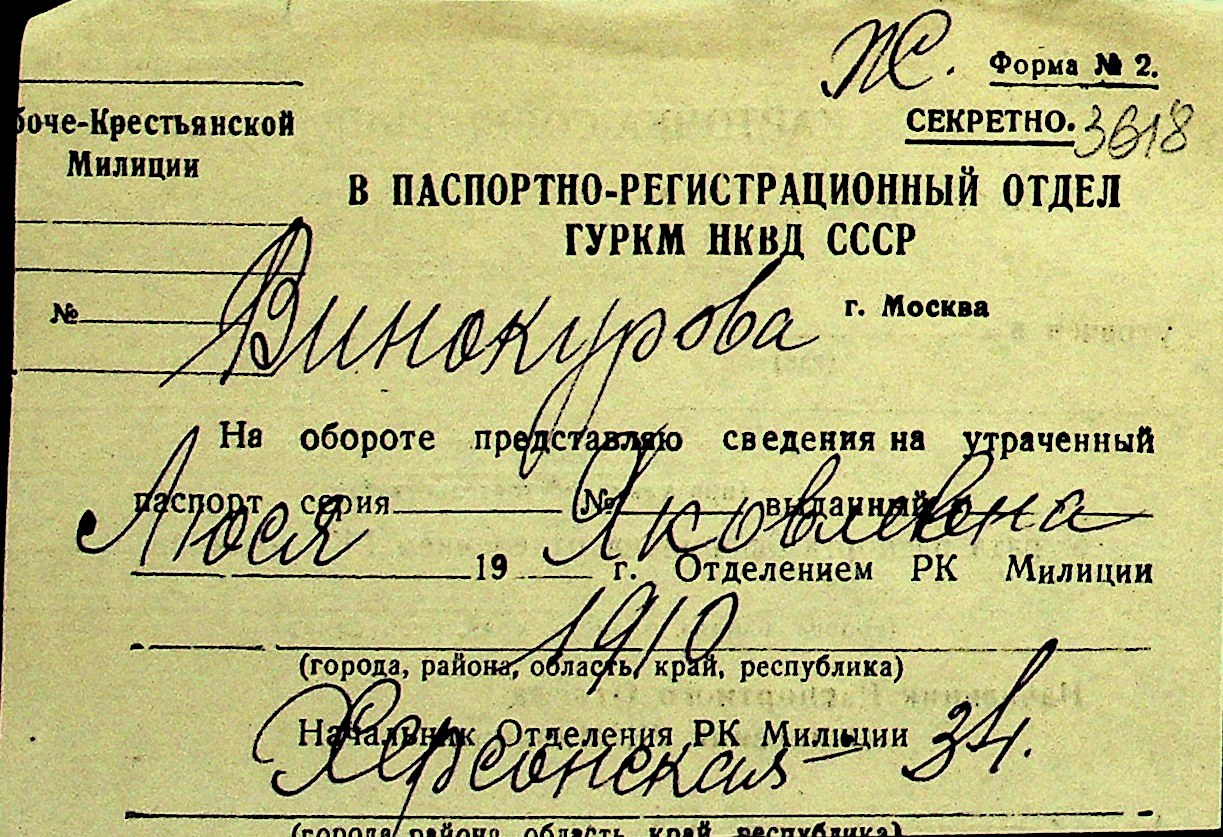 Ж. Форма № 2.
СЕКРЕТНО. 3618
боче-Крестьянской
Милиции
В ПАСПОРТНО-РЕГИСТРАЦИОННЫЙ ОТДЕЛ
ГУРКМ НКВД СССР
№
г. Москва
Винокурова
На обороте представляю сведения на утраченный
паспорт серия № выданный
Люся Яковлевна
19 г. Отделением РК Милиции
1910
(города, района, область, край, республика)
Начальник Отделения РК Милиции
Херсонская - 34.
(города района область край республика)